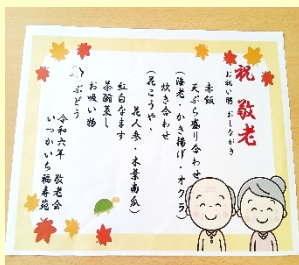 祝 敬老
お祝い膳 おしながき
赤飯
天ぷら盛り合わせ
(海老・かき揚げ・オクラ)
炊き合わせ
(花こうや、
花人参・木葉南瓜)
紅白なます
茶碗蒸し
お吸い物
ぶどう
令和六年 敬老会
いつかいち福寿苑